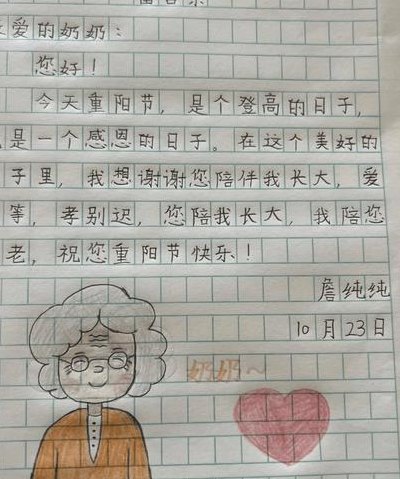 爱的奶奶：
您好！
今天重阳节，是个登高的日子，
是一个感恩的日子。在这个美好的
子里，我想谢谢您陪伴我长大，爱
等，孝别迟，您陪我长大，我陪您
老，祝您重阳节快乐！
詹纯纯
10月23日
奶奶~